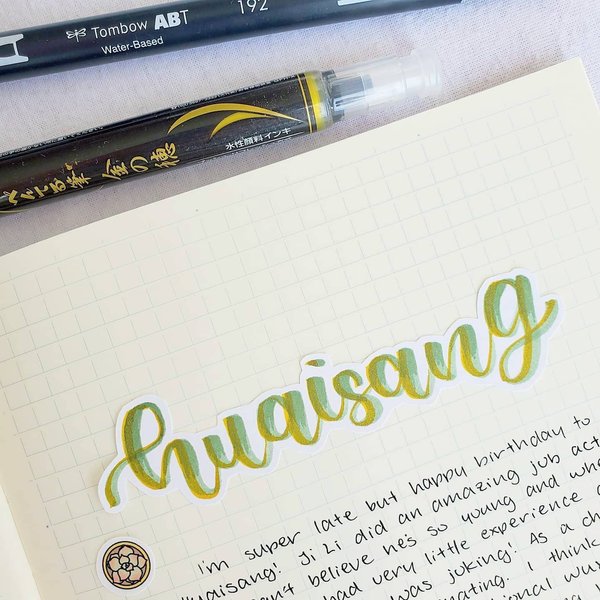 Tombow ABT 192
Water-Based
水性顔料インキ
ぺんてる筆 金の穂
huaisang
I'm super late but happy birthday to
Huaisang! Ji Li did an amazing job act
can't believe he's so young and whe
had very little experience
was joking! As a ch
mating. I think
tional wur